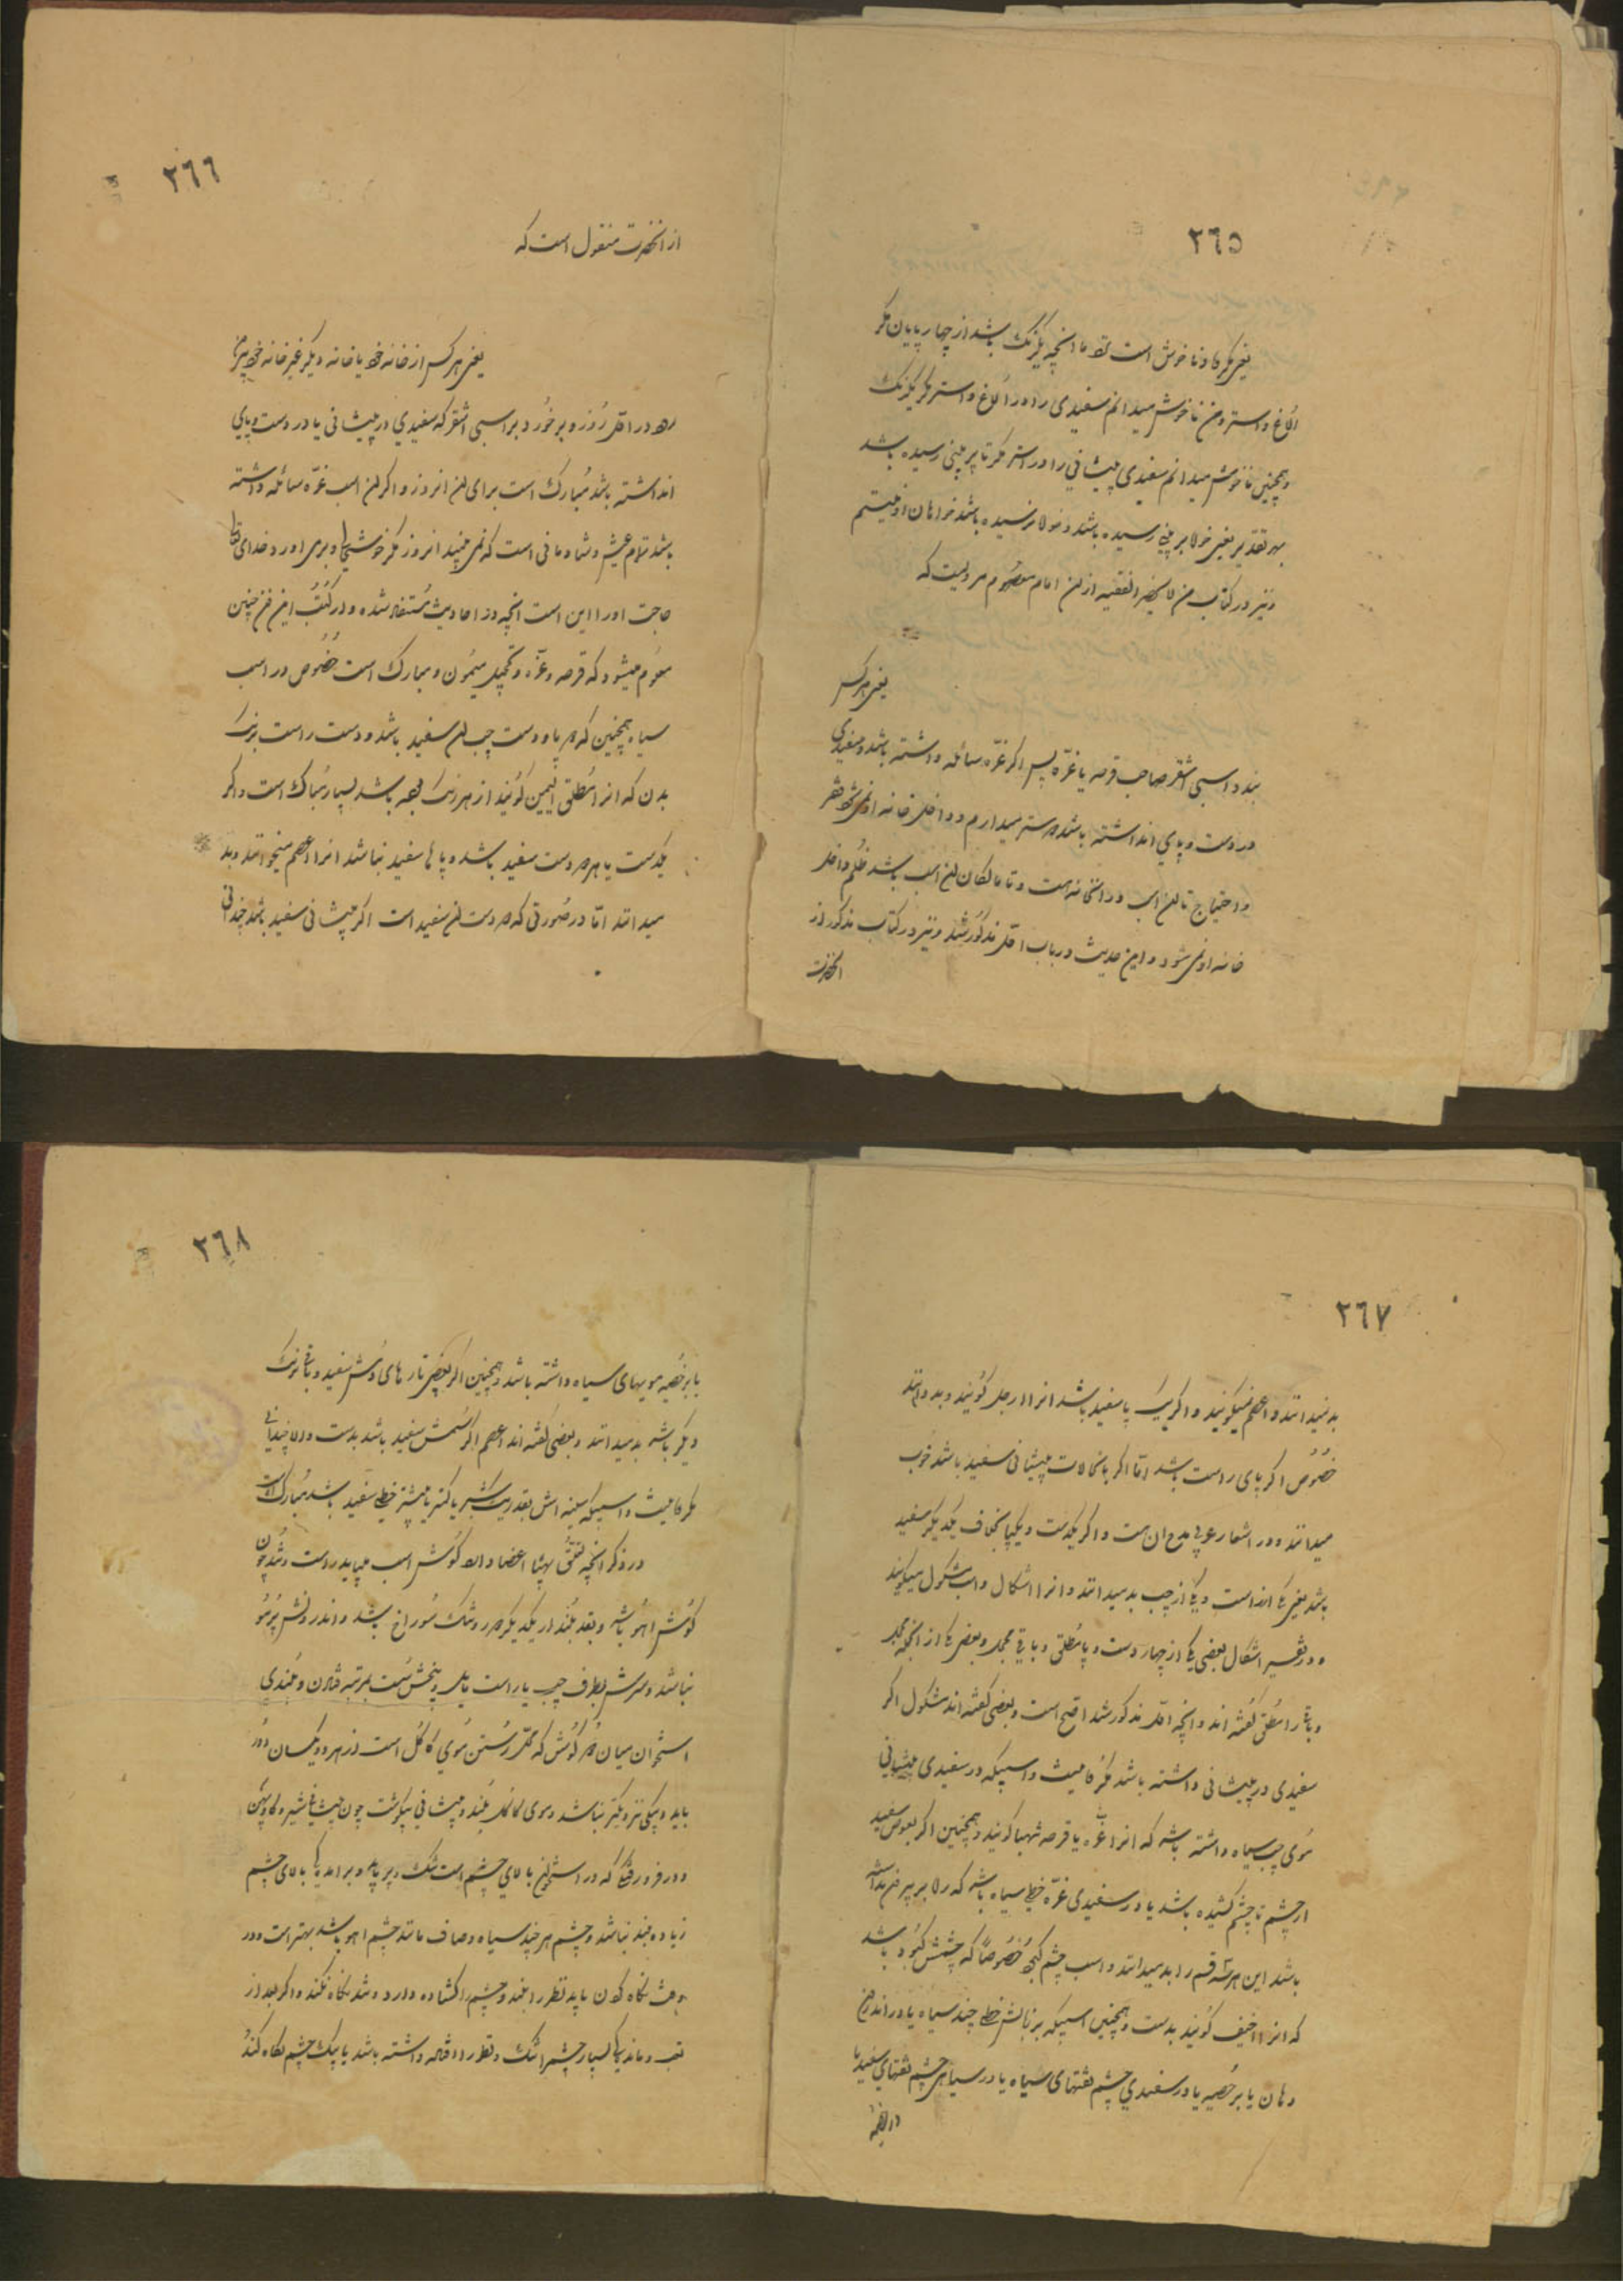 ٢٦٥
یعنی مکروه و ناخوش است تمام آنچه یکرنک باشد از چهارپایان مکر
الاغ و استر و من ناخوش میدانم سفیدی را در الاغ و استر یکرنک
و همچنین ناخوش میدانم سفیدی پیشانی را در استر مکر تا بر بینی رسیده باشد
بهر تقدیر یعنی خواه بر بینی رسیده باشد و خواه نرسیده باشد خواهان او نیستم
و نیز در کتاب من لا یحضر الفقیه از آن امام معصوم مرویست که
یعنی هر کس
بندد اسبی اشقر صاحب قرحه یا غره پس اکر غره سائله داشته باشد و سفیدی
در دست و پای نداشته باشد دوستر میدارم و داخل خانه او نمی‌شود فقر
و احتیاج تا آن اسب در آنخانه است و تا مالکان آن اسب باشد ظلم داخل
خانه او نمی‌شود و این حدیث در باب اول مذکور شد و نیز در کتاب مذکور از
آنحضرت
٢٦٦
از آنحضرت منقول است که
یعنی هر کس از خانه خود یا خانه دیکر غیر خانه خود بیرون
رود در اول روز و برخورد بر اسبی اشقر که سفیدی در پیشانی یا در دست و پای
داشته باشد مبارک است برای آن انروز و اکر آن اسب غره سائله داشته
باشد تمام عیش و شادمانی است که نمی‌بیند انروز مکر خوشحالی و برمی‌آورد خدای تعالی
حاجت او را این است آنچه در احادیث مستفاد شده و در کتب این فن چنین
معلوم میشود که قرحه و غره و تحجیل میمون و مبارک است خصوص در اسب
سیاه همچنین که دو پا و دست چپ آن سفید باشد و دست راست برنک
بدن که انرا مطلق الیمین کویند از هر رنک که باشد بسیار مبارک است و اکر
یکدست یا هر دو دست سفید باشد و پاها سفید نباشد انرا اعصم میخوانند و بد
میدانند اما در صورتی که دو دست آن سفید است اکر پیشانی سفید باشد چندانی
٢٦٧
بد نمیدانند و اعصم نمیکویند و اکر یک پا سفید باشد انرا ارجل کویند و بد دانند
خصوص اکر پای راست باشد اما اکر با نحالت پیشانی سفید باشد خوب
میدانند و در اشعار عربی مدح ان هست و اکر یکدست و یکپا بخلاف یکدیکر سفید
باشد یعنی یکی از راست و یکی از چپ بد میدانند و انرا اشکال و اسب مشکول میکویند
و در تفسیر اشکال بعضی یکی از چهار دست و پا مطلق و باقی محجل و بعضی یکی از آنجمله محجل
و باقی را مطلق کفته اند و آنچه اول مذکور شد اصح است و بعضی کفته اند مشکول اکر
سفیدی در پیشانی داشته باشد مکروه نیست و اسپیکه در سفیدی پیشانی
موی سیاه داشته باشد که انرا غره یا قرحه شهبا کویند و همچنین اکر سفید
از چشم تا چشم کشیده باشد یا در سفیدی غره خطی سیاه باشد که
باشد این هر سه قسم را بد میدانند و اسب چشم کج خصوصاً که چشمش کبود باشد
که انرا اخیف کویند بدست و همچنین اسپیکه بر زبانش خطی چند سیاه یا در اندرون
دهان یا بر خصیه یا در سفیدی چشم نقطهای سیاه یا در سیاهی چشم نقطهای سفید یا
٢٦٨
یا بر خصیه مویهای سیاه داشته باشد و همچنین اکر بعضی تارهای دمش سفید و باقی برنک
دیکر باشد بد میدانند و بعضی کفته اند اعصم اکر دمش سفید باشد بدست و الا چندانی
مکروه نیست و اسپیکه سینه اش بقدر یک شبر یا کمتر یا بیشتر خطی سفید باشد مبارکست
در ذکر آنچه بهیئات اعضا دارد کوش اسب میباید راست و تند چون
کوش اهو باشد و بقد بلند از یکدیکر دور و تنک سوراخ باشد و اندرونش پر مو
نباشد و سرش بطرف چپ یا راست مایل و بیخش سست بمرتبه فتادن و بلندی
استخوان میان دو کوش که محل رستن موی کاکل است از هر دو یکسان دور
باید و بیکی نزدیکتر نباشد و موی کاکل بلند و پیشانی پرکوشت چون پیشانی شیر و کاو پهن
و دو فرورفتکی که در استخوان بالای چشم است تنک و پر باید و برآمدیکی بالای چشم
زیاده بلند نباشد و چشم هر چند سیاه و صاف مانند چشم اهو باشد بهتر است و در
وقت نکاه کردن باید نظر را بلند و چشم را کشاده دارد و تند نکاه نکند و اکر بعد از
تعب و ماندکی بسیار چشم را تنک و نظر را کوتاه داشته باشد یا بیک چشم نکاه کند